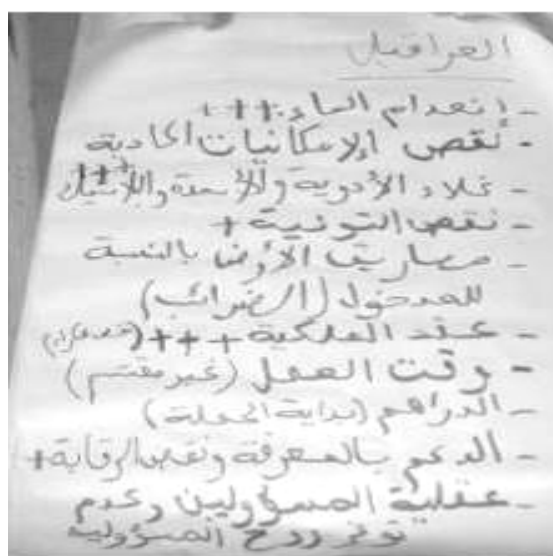 العراقيل
- إنعدام الماء +++
- نقص الإمكانيات المادية
- غلاء الأدوية والأسمدة والبلاستيك +++
- نقص التوعية +
- مصاريف الأرض بالنسبة
للمدخول (الضرائب)
- عقد الملكية +++
- وقت العمل (غير مقسم)
- الدراهم (بداية الحملة)
- الدعم بالمعرفة ونقص الرقابة +
- عقلية المسؤولين وعدم
توفر روح المسؤولية